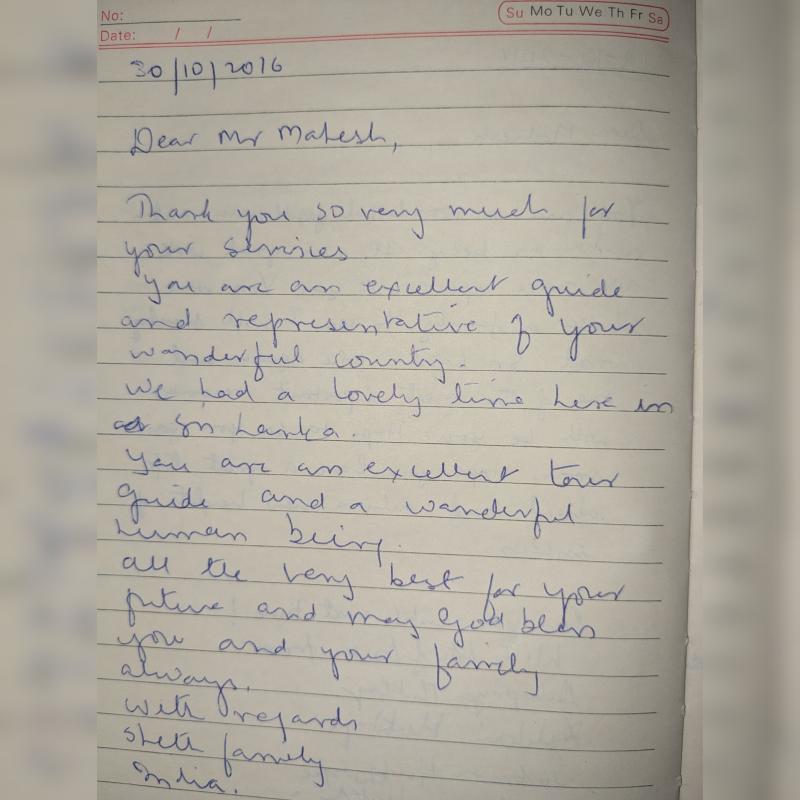 No:
Su Mo Tu We Th Fr Sa
Date: / /
30/10/2016
Dear Mr Mahesh,
Thank you so very much for
your services
You are an excellent guide
and representative of your
wonderful country.
We had a lovely time here in
Sri Lanka.
You are an excellent tour
guide and a wonderful
human being.
All the very best for your
future and may God bless
you and your family
always.
With regards
Sheth family
India.